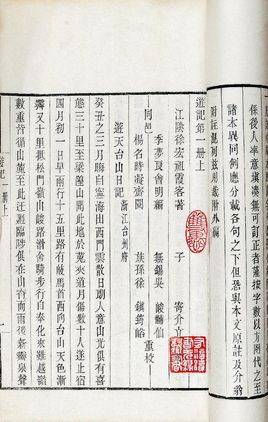 係後人率意填湊無可訂正者葉按字數以方圍代之至
諸本異同例應分載各句之下但恐與本文原註及介翁
遊記第一册上
江陰徐宏祖霞客著 子 寄介立
季夢良會明編 無錫吳
同邑 重校
楊名時凝齋閱 族孫徐 鎮筠峪
遊天台山日記 浙江台州府
癸丑之三月晦自寧海出西門雲散日朗人意山光俱有喜
態三十里至梁隍山聞此地於菟夾道月傷數十人遂止
四月初一日早雨行十五里路有岐馬首西向台山天色漸
霽又十里抵松門嶺山峻路滑舍騎步行自奉化來雖越嶺
數重皆循山麓至此迂迴臨陟俱在山脊而雨後新霽泉聲